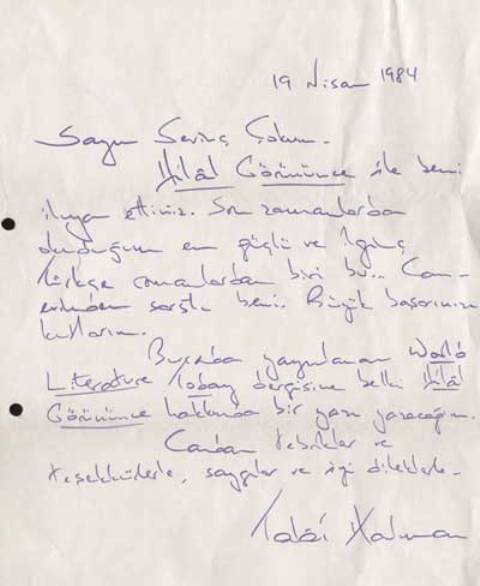 19 Nisan 1984
Sayın Sevinç Çokum-
Hilâl Görününce ile beni
ihya ettiniz. Son zamanlarda
okuduğum en güçlü ve ilginç
Türkçe romanlardan biri bu.. Can-
evinden sarstı beni. Büyük başarınızı
kutlarım.
Burada yayınlanan World
Literature Today dergisine belki Hilâl
Görününce hakkında bir yazı yazacağım.
Candan tebrikler ve
teşekkürlerle, saygılar ve iyi dileklerle-
Talât Halman